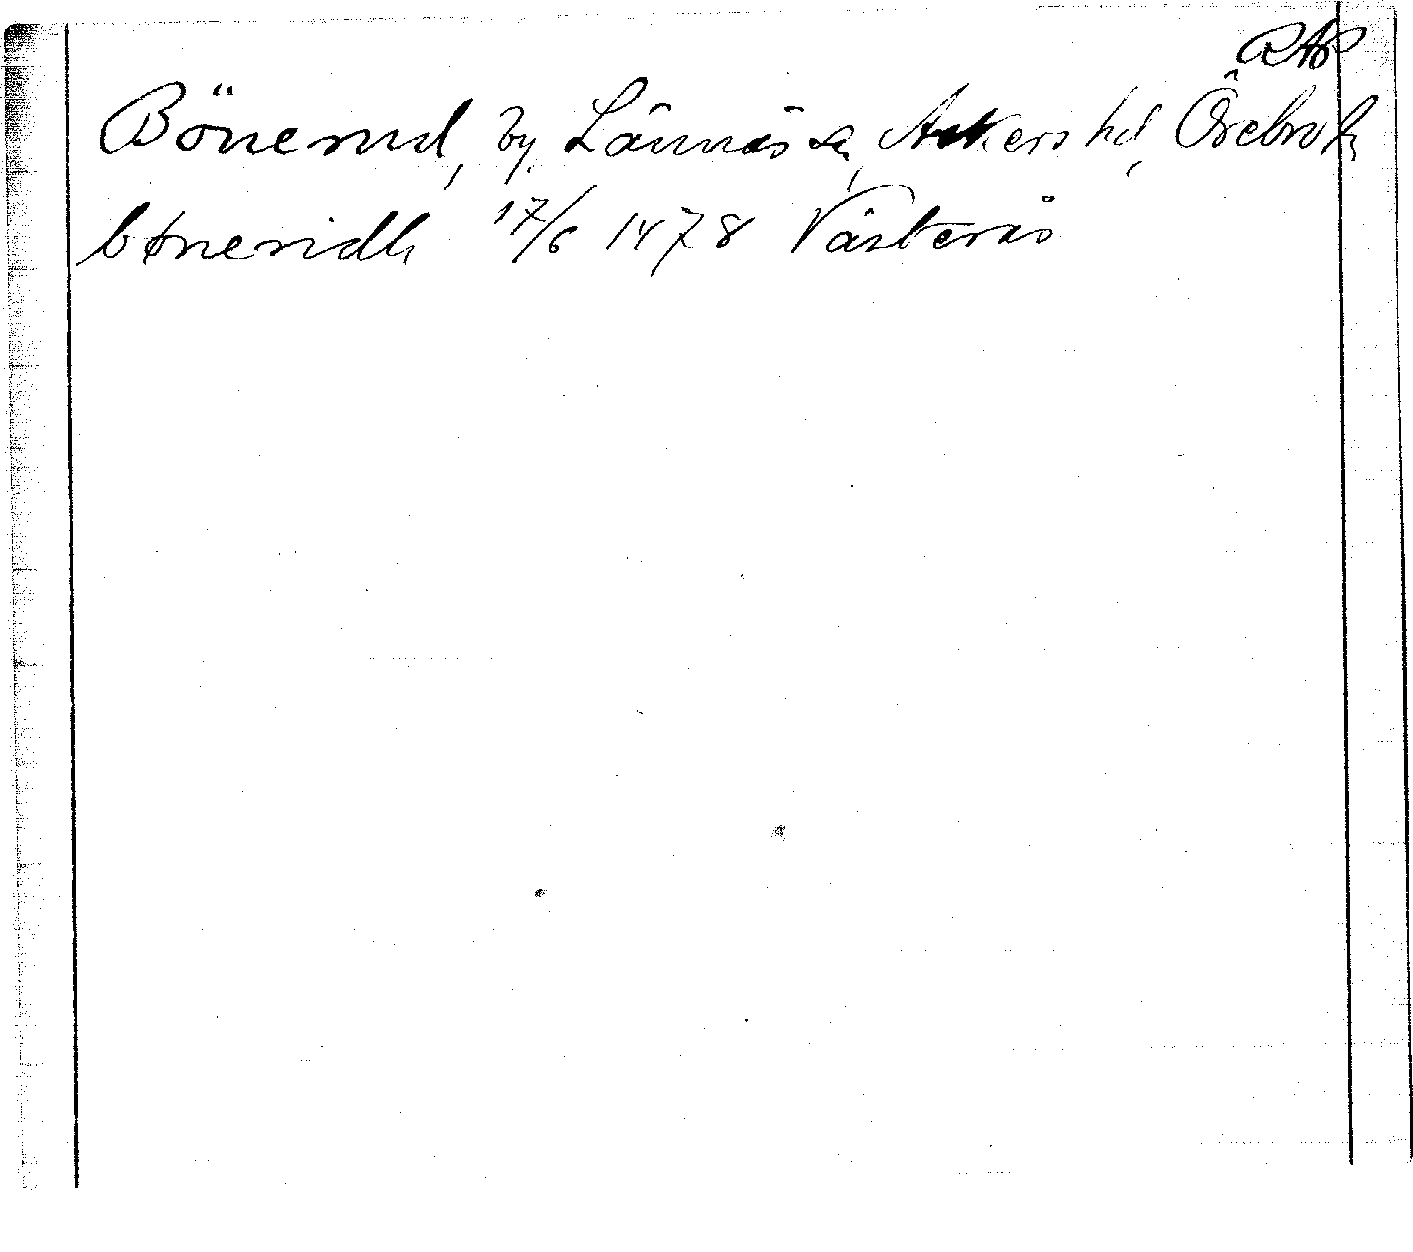 RAP
Bönerud, by, Lännäs sn, Askers hd, Örebro l.
bøneridh 17/6 1478 Västerås